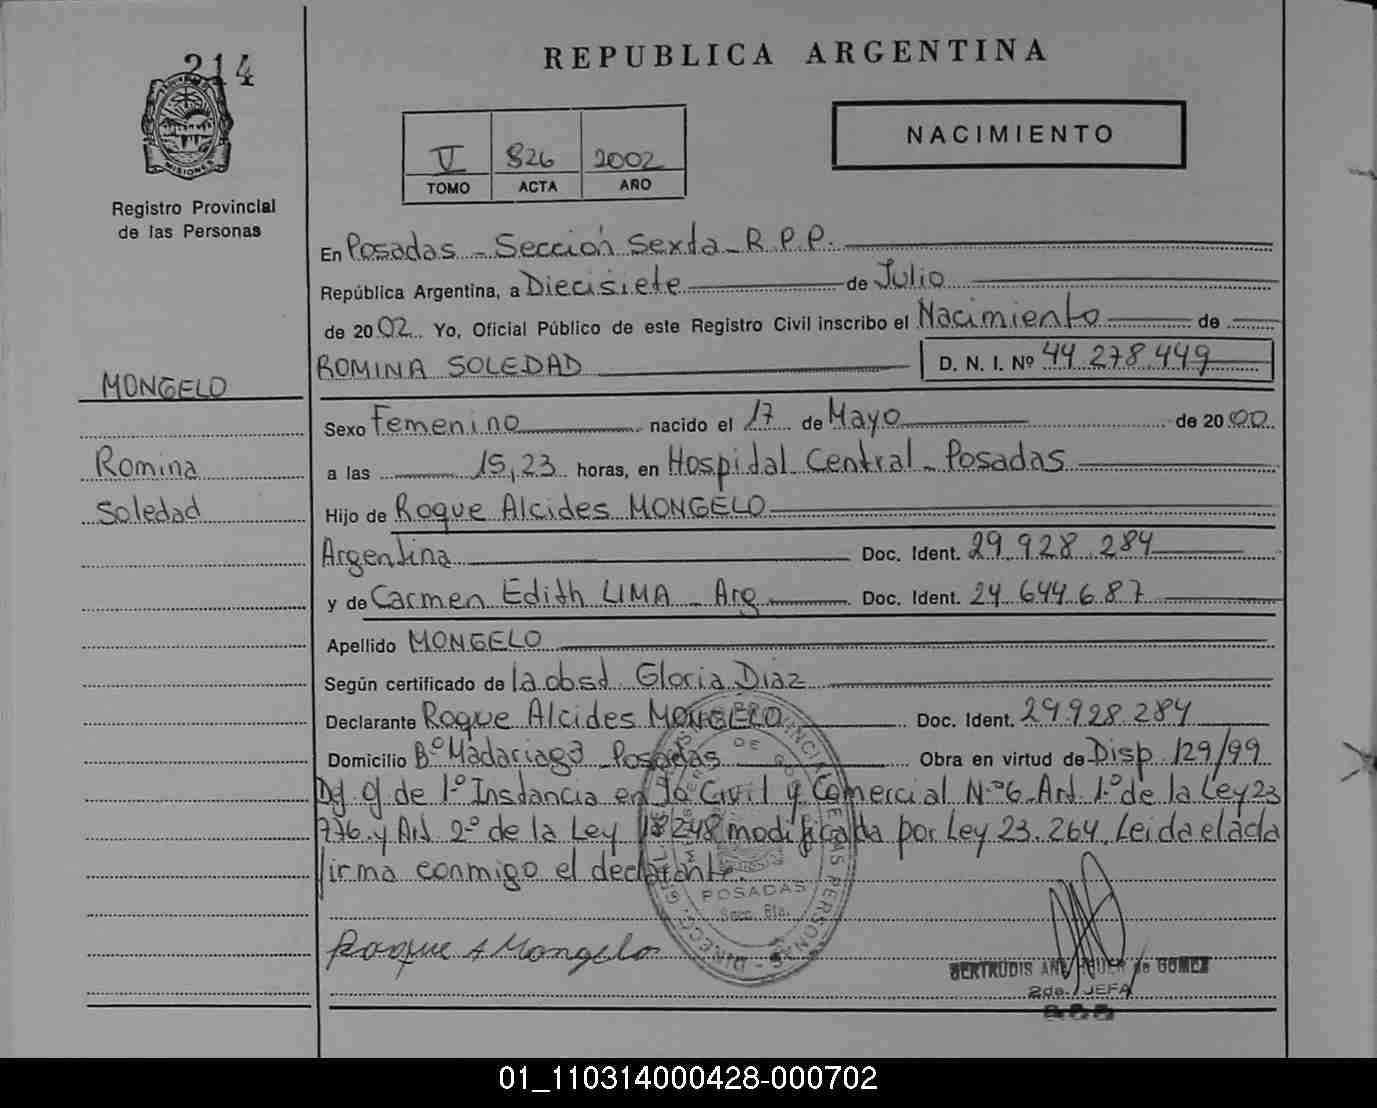 214
REPUBLICA ARGENTINA
V 826 2002
TOMO ACTA AÑO
NACIMIENTO
MISIONES
Registro Provincial
de las Personas
En Posadas - Sección Sexta - R.P.P.
República Argentina, a Diecisiete de Julio
de 2002. Yo, Oficial Público de este Registro Civil inscribo el Nacimiento de
ROMINA SOLEDAD D. N. I. Nº 44.278.449
MONGELO
Sexo Femenino nacido el 17 de Mayo de 2000.
Romina
a las 15,23 horas, en Hospidal Central - Posadas
Soledad
Hijo de Roque Alcides MONGELO
Argentina Doc. Ident. 29.928.284
y de Carmen Edith LIMA - Arg Doc. Ident. 24.644.687
Apellido MONGELO
Según certificado de la obst. Gloria Diaz
Declarante Roque Alcides MONGELO Doc. Ident. 29928.284
Domicilio Bº Madariaga - Posadas Obra en virtud de Disp. 129/99
de 1º Instancia en lo Civil y Comercial Nº 6. Art. 1º de la Ley 23
776 y Art 2º de la Ley 18248 modificada por Ley 23.264. Leida el acta
firma conmigo el declarante.
POSADAS
Secc. 6ta.
Roque A Mongelo
GERTRUDIS de GOMEZ
2da. JEFA
01_110314000428-000702